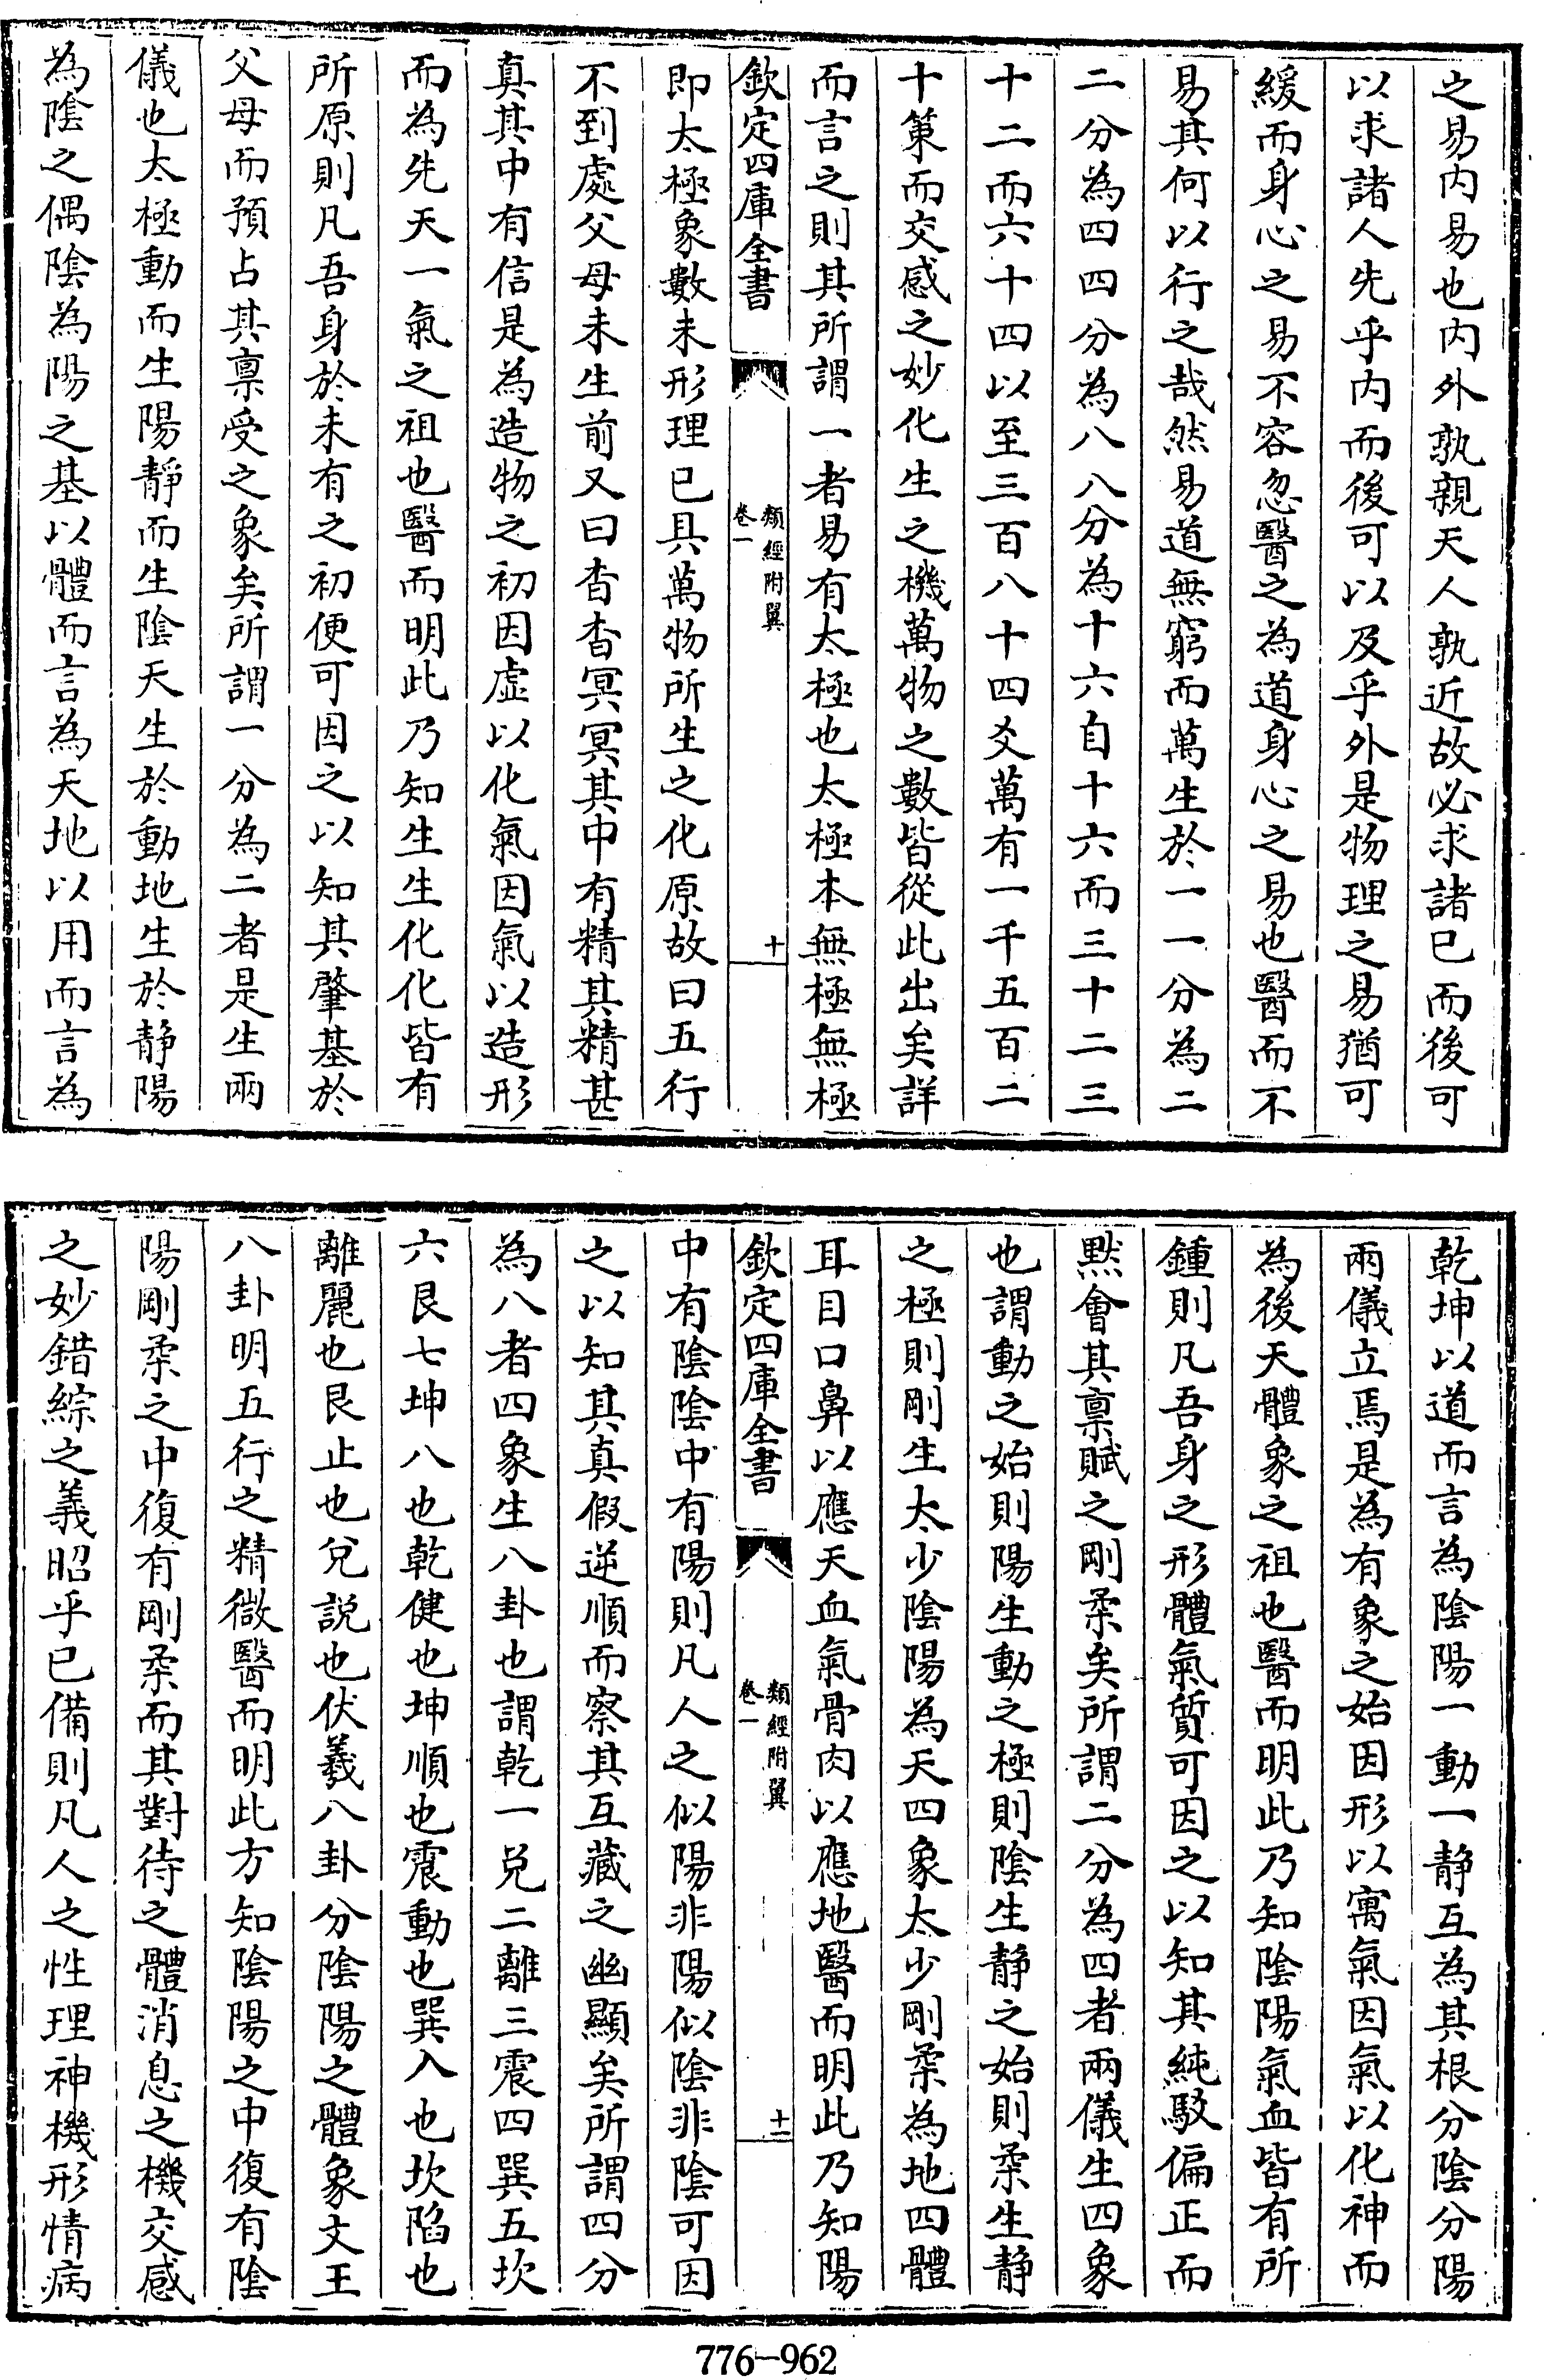 之易内易也内外孰親天人孰近故必求諸己而後可
以求諸人先乎内而後可以及乎外是物理之易猶可
緩而身心之易不容忽醫之為道身心之易也醫而不
易其何以行之哉然易道無窮而萬生於一一分為二
二分為四四分為八八分為十六自十六而三十二三
十二而六十四以至三百八十四爻萬有一千五百二
十策而交感之妙化生之機萬物之數皆從此出矣詳
而言之則其所謂一者易有太極也太極本無極無極
欽定四庫全書
類經附翼
卷一
十
即太極象數未形理已具萬物所生之化原故曰五行
不到處父母未生前又曰杳杳冥冥其中有精其精甚
真其中有信是為造物之初因虛以化氣因氣以造形
而為先天一氣之祖也醫而明此乃知生生化化皆有
所原則凡吾身於未有之初便可因之以知其肇基於
父母而預占其禀受之象矣所謂一分為二者是生兩
儀也太極動而生陽靜而生陰天生於動地生於静陽
為陰之偶陰為陽之基以體而言為天地以用而言為
乾坤以道而言為陰陽一動一静互為其根分陰分陽
兩儀立焉是為有象之始因形以寓氣因氣以化神而
為後天體象之祖也醫而明此乃知陰陽氣血皆有所
鍾則凡吾身之形體氣質可因之以知其純駁偏正而
黙會其禀賦之剛柔矣所謂二分為四者兩儀生四象
也謂動之始則陽生動之極則陰生静之始則柔生静
之極則剛生太少陰陽為天四象太少剛柔為地四體
耳目口鼻以應天血氣骨肉以應地醫而明此乃知陽
欽定四庫全書
類經附翼
卷一
十一
中有陰陰中有陽則凡人之似陽非陽似陰非陰可因
之以知其真假逆順而察其互藏之幽顯矣所謂四分
為八者四象生八卦也謂乾一兌二離三震四巽五坎
六艮七坤八也乾健也坤順也震動也巽入也坎陷也
離麗也艮止也兌説也伏羲八卦分陰陽之體象文王
八卦明五行之精微醫而明此方知陰陽之中復有陰
陽剛柔之中復有剛柔而其對待之體消息之機交感
之妙錯綜之義昭乎已備則凡人之性理神機形情病
776-962